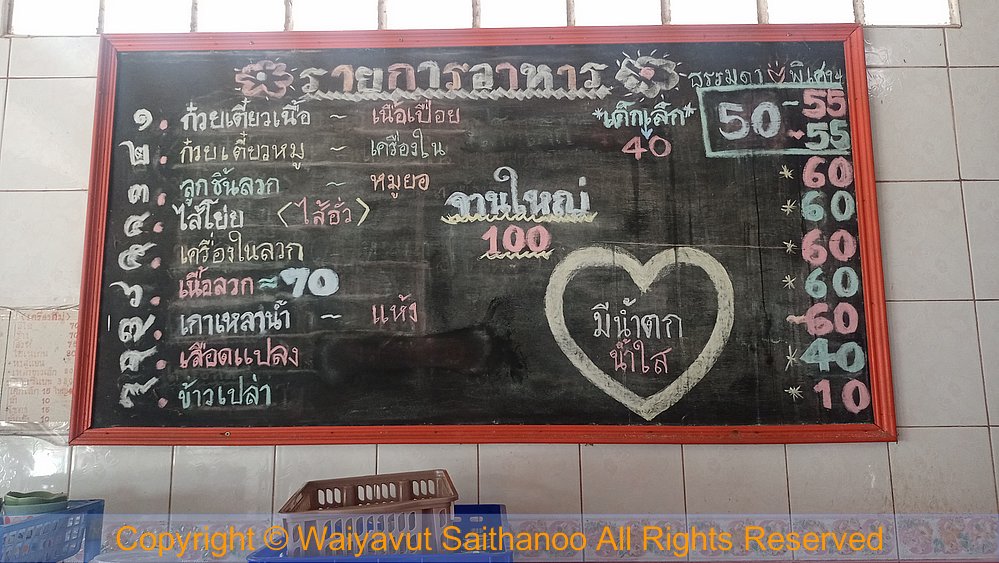 รายการอาหาร
ธรรมดา พิเศษ
๑. ก๋วยเตี๋ยวเนื้อ ~ เนื้อเปื่อย *เด็กเล็ก* 50 ~ 55
๒. ก๋วยเตี๋ยวหมู ~ เครื่องใน 40 ~ 55
๓. ลูกชิ้นลวก ~ หมูยอ * 60
๔. ไส้โย่ย <ไส้อั่ว> จานใหญ่ * 60
๕. เครื่องในลวก 100 * 60
๖. เนื้อลวก ≈ 70 * 60
๗. เกาเหลาน้ำ ~ แห้ง มีน้ำตก ~ 60
๘. เลือดแปลง น้ำใส * 40
๙. ข้าวเปล่า * 10
Copyright © Waiyavut Saithanoo All Rights Reserved